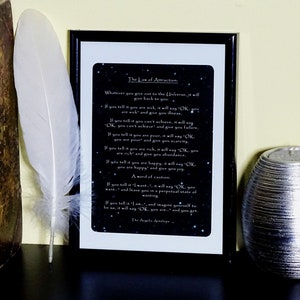 The Law of Attraction
Whatever you give out to the Universe, it will
give back to you.
If you tell it you are sick, it will say "OK, you
are sick" and give you illness.
If you tell it you can't achieve, it will say
"OK, you can't achieve" and give you failure.
If you tell it you are poor, it will say "OK, you
are poor" and give you scarcity.
If you tell it you are rich, it will say "OK, you
are rich" and give you abundance.
If you tell it you are happy, it will say "OK, you
are happy" and give you joy.
A word of caution:
If you tell it "I want...", it will say "OK, you
want..." and leave you in a perpetual state of
wanting.
If you tell it "I am...", and imagine yourself to
be so, it will say "OK, you are..." and you get.
The Angelic